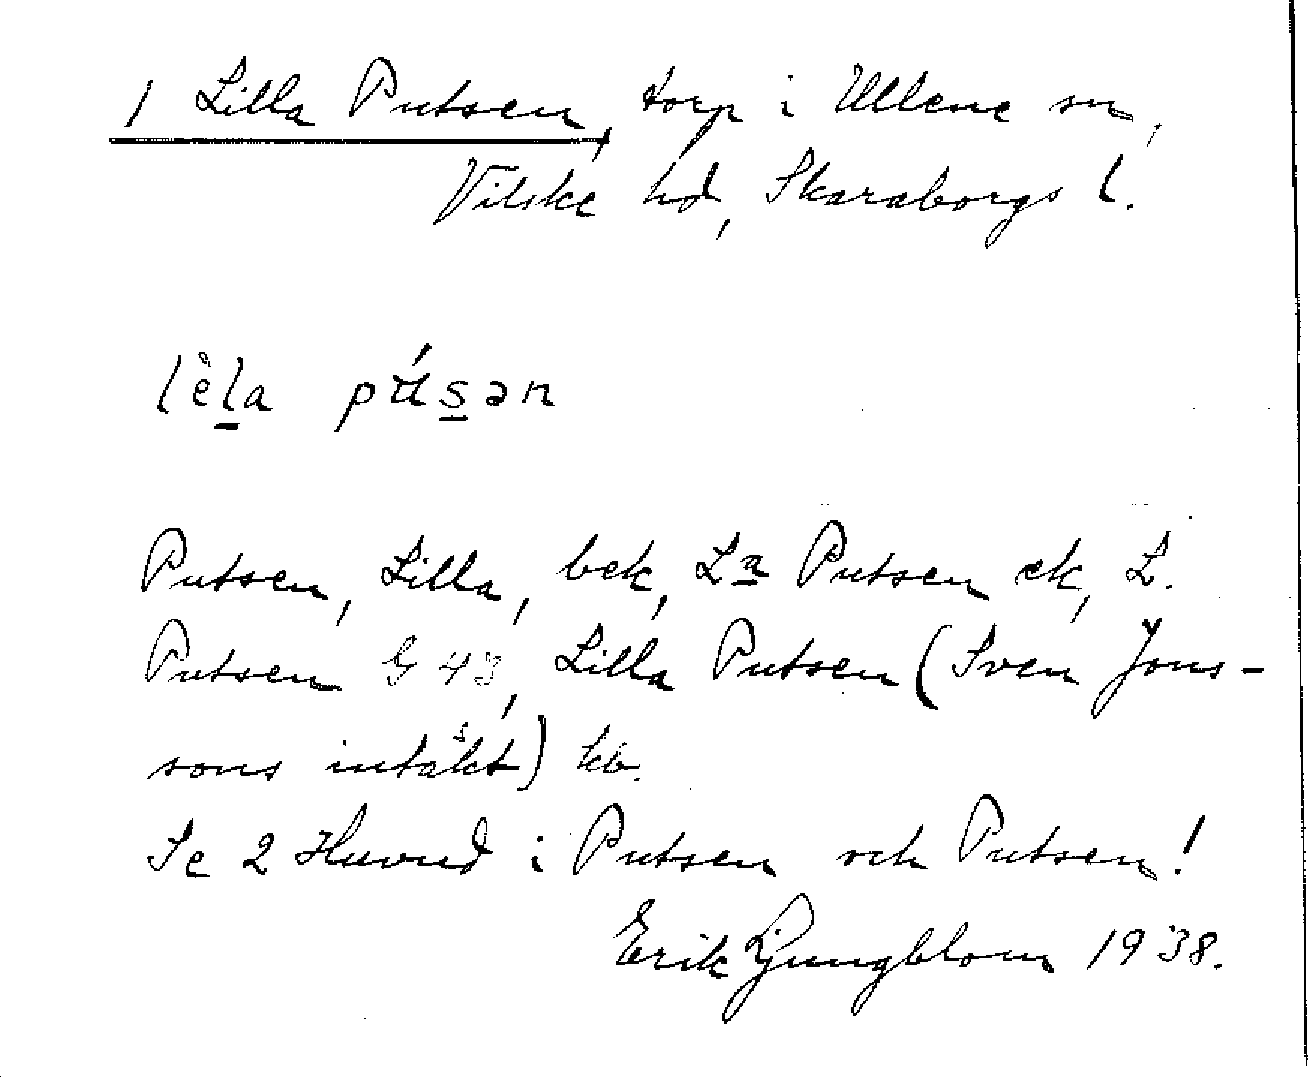 1 Lilla Putsen, torp i Ullene sn,
Vilske hd, Skaraborgs l.
Putsen, Lilla, bek, La Putsen ek, L.
Putsen G 43, Lilla Putsen (Sven Jons-
sons intäkt) kb.
Se 2 Huvud i Putsen och Putsen!
Erik Ljungblom 1938.